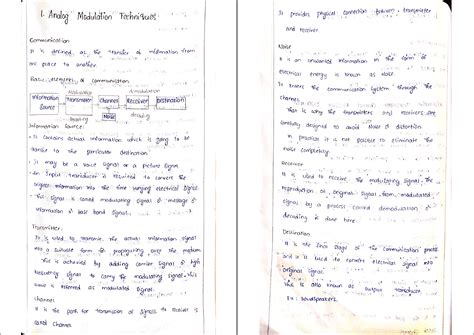 1. Analog Modulation Techniques
Communication
It is defined as the transfer of information from
one place to another.
Basic elements of communication
Modulation demodulation
Information Source Transmitter Channel Receiver Destination
Noise
Encoding decoding
Information Source:
It contains actual information which is going to be
transfer to the particular destination
It may be a voice signal or a picture signal
An Input Transducer is required to convert the
information into the time varying electrical signal
This signal is called modulating signal or message or
information or base band signal.
Transmitter:
It is used to transmit the actual information signal
into a suitable form of propagating over the medium
This is achieved by adding carrier signal of high
frequency signal to carry the modulating signal. This
is termed as modulated signal.
Channel
It is the path for transmission of signals to receiver is
called channel
It provides physical connection between transmitter
and receiver.
Noise
It is an unwanted information in the form of
electrical energy is known as Noise.
It enters the communication system through the
channel
This is why the transmitters and receivers are
carefully designed to avoid noise & distortion.
In practice it is not possible to eliminate the
noise completely.
Receiver
It is used to receive the modulating signal. The
reproduction of original signal from modulated
signal by a process called demodulation &
decoding is done here.
Destination
It is the final stage of the communication process
and it is used to convert electrical signal into
original signal
This is also known as output transducer
Ex: loudspeakers